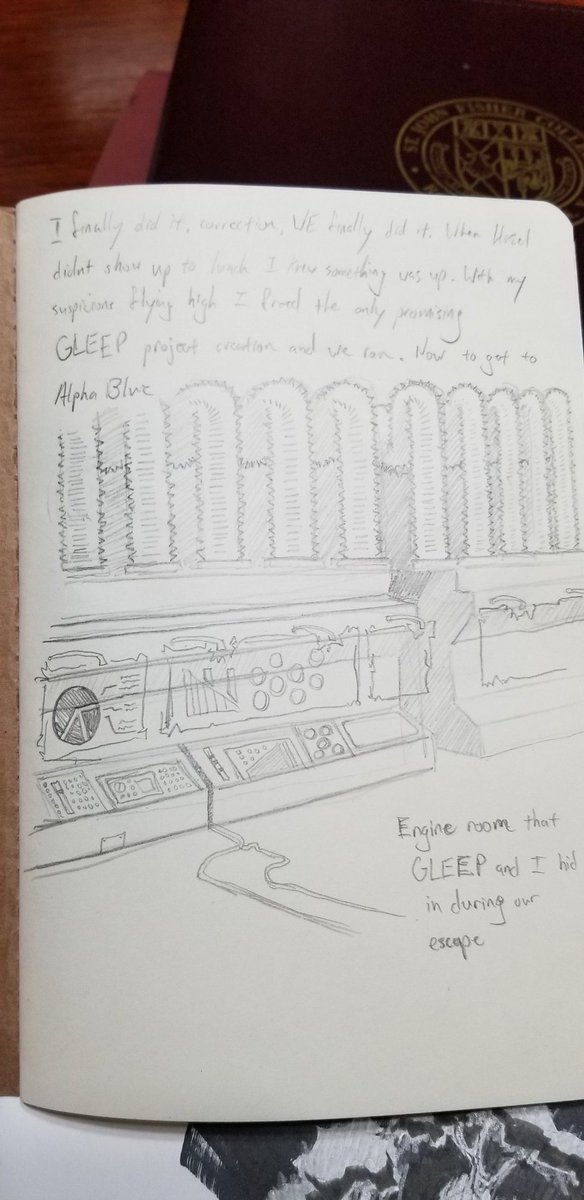 ST. JOHN FISHER COLLE
I finally did it, correction, WE finally did it. When
didnt show up to lunch I knew something was up. With my
suspicions flying high I freed the only promising
GLEEP project creation and we ran. Now to get to
Alpha Blue
Engine room that
GLEEP and I hid
in during our
escape